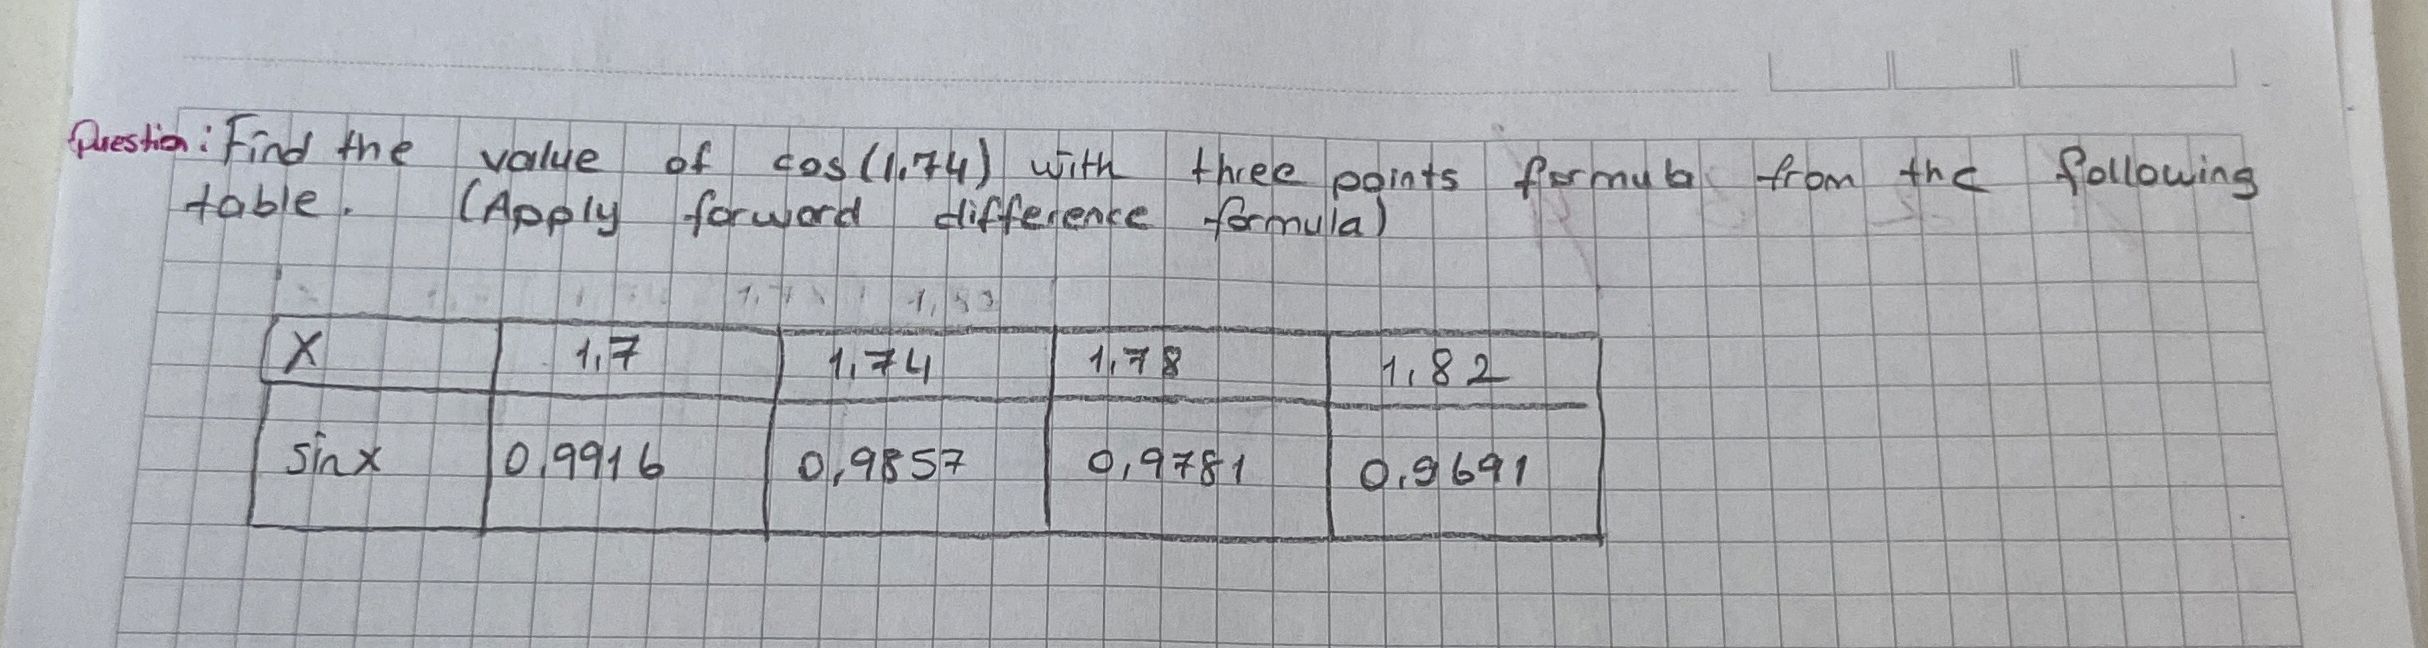 Question: Find the value of cos(1.74) with three points formula from the following
table. (Apply forward difference formula)
X 1,7 1,74 1,78 1,82
sinx 0,9916 0,9857 0,9781 0,9691